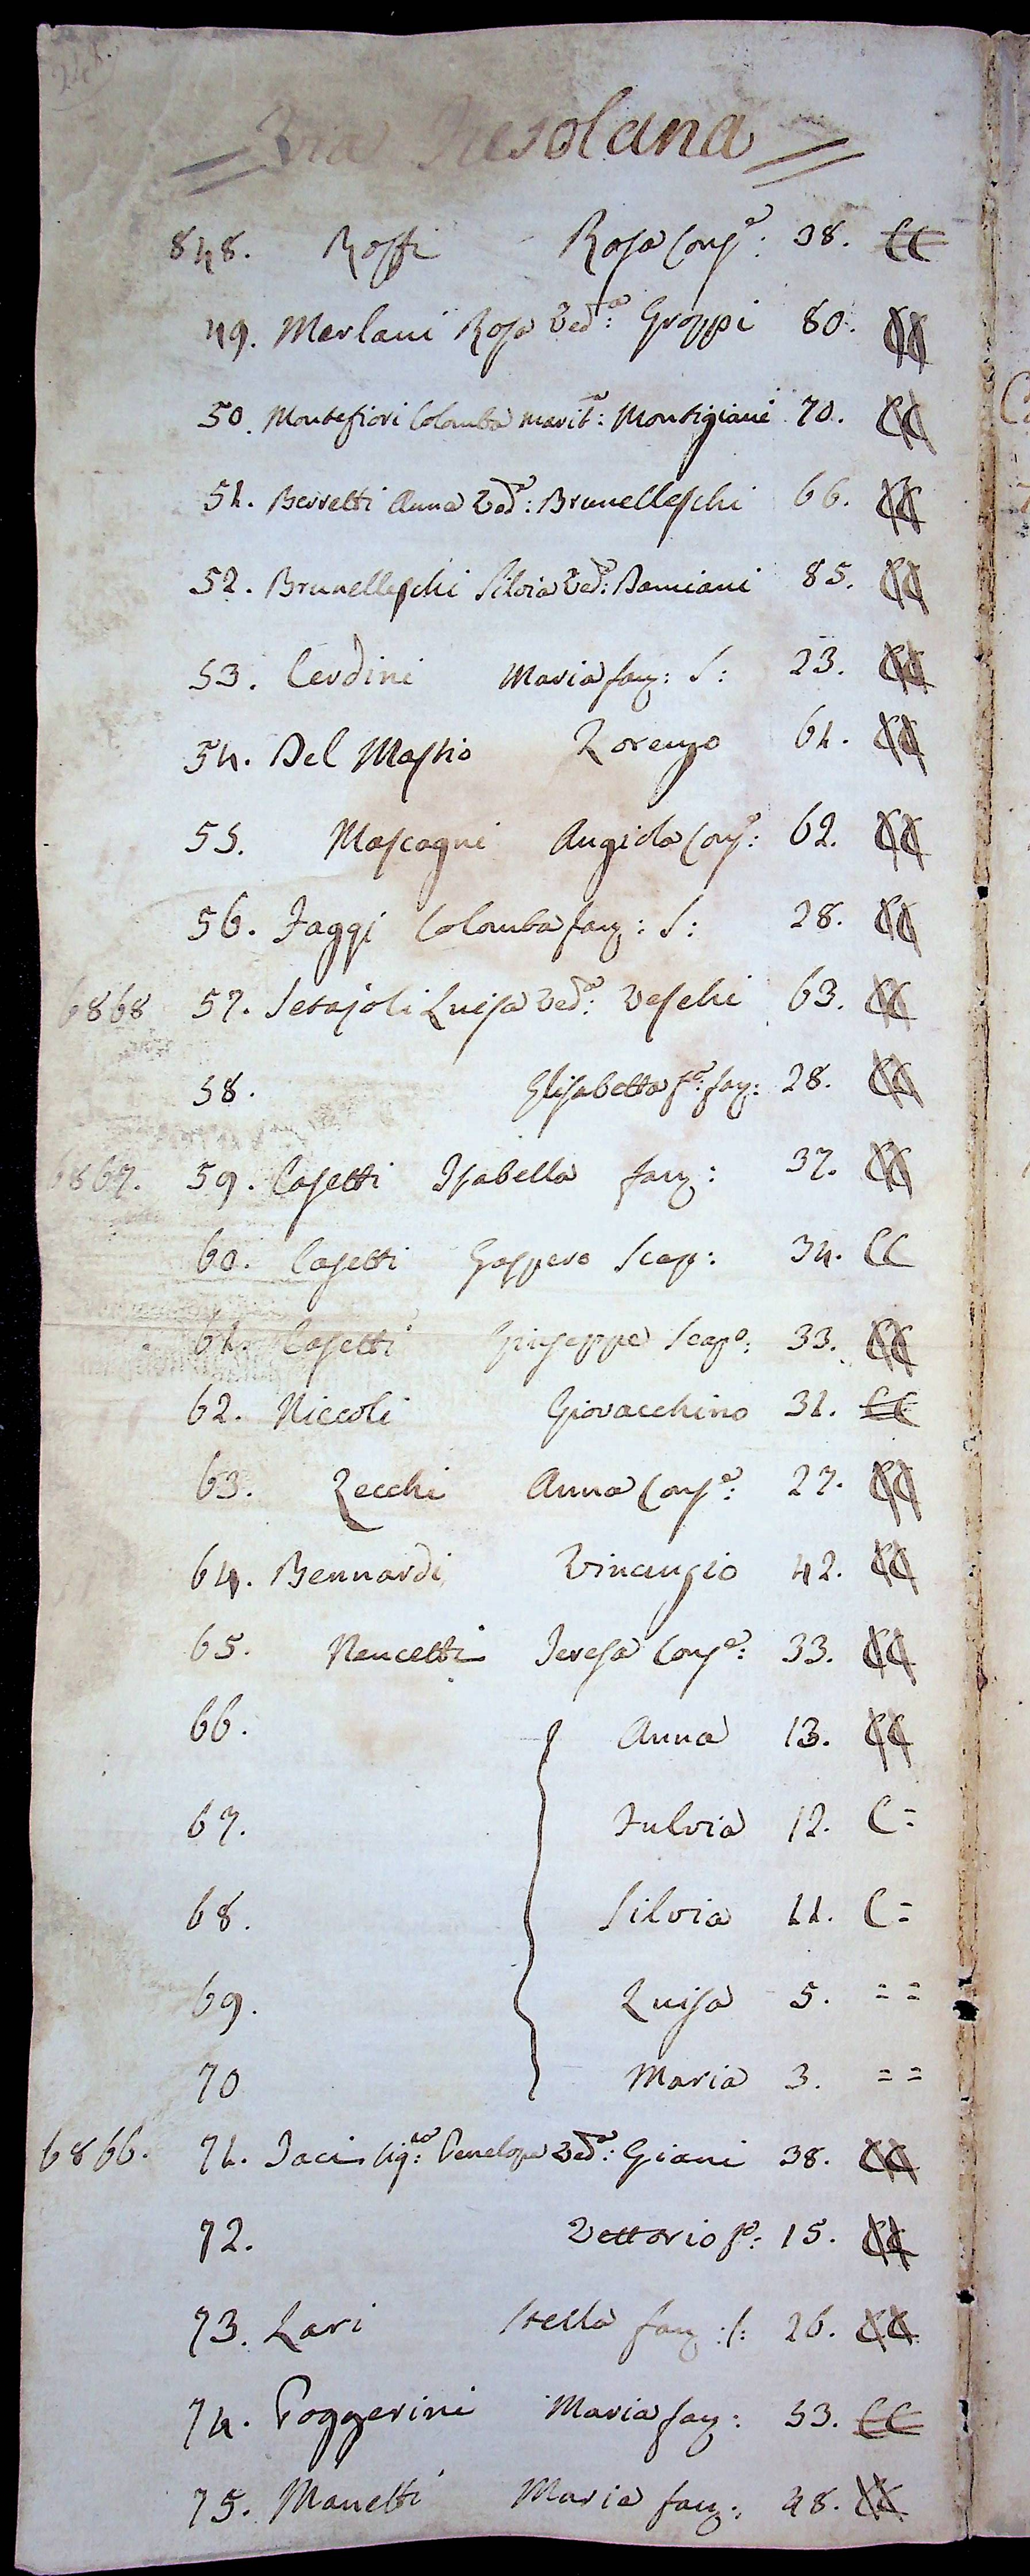 Via Fiesolana
848. Roffi Rosa Cong.e: 38. CC
49. Merlani Rosa Ved.a: Groppi 80. CC
50. Montefiori Colomba marit.a: Montigiani 70. CC
51. Berretti Anna Ved.a: Brunelleschi 66. CC
52. Brunelleschi Silvia Ved.a: Damiani 85. CC
53. Cerdini Maria fan: S: 23. CC
54. Del Mastio Lorenzo 61. CC
55. Mascagni Angiola Cong.e: 62. CC
56. Faggi Colomba fan: S: 28. CC
6868 57. Setajoli Luisa Ved.a: Veschi 63. CC
58. Elisabetta f.a: fan: 28. CC
6867. 59. Casetti Isabella fan: 37. CC
60. Casetti Gaspero Scap: 34. CC
61. Casetti Giuseppe Scap.o: 33. CC
62. Niccoli Giovacchino 31. CC
63. Zecchi Anna Cong.e: 27. CC
64. Bennardi Vincenzio 42. CC
65. Nencetti Teresa Cong.e: 33. CC
66. Anna 13. CC
67. Fulvia 12. C=
68. Silvia 11. C=
69. Luisa 5. = =
70 Maria 3. = =
6866. 71. Jaci Sig.ra: Penelope Ved.a: Giani 38. CC
72. Vettorio f.o: 15. CC
73. Lari Stella fan: S: 26. CC
74. Poggerini Maria fan: 53. CC
75. Manetti Maria fan: 48. CC